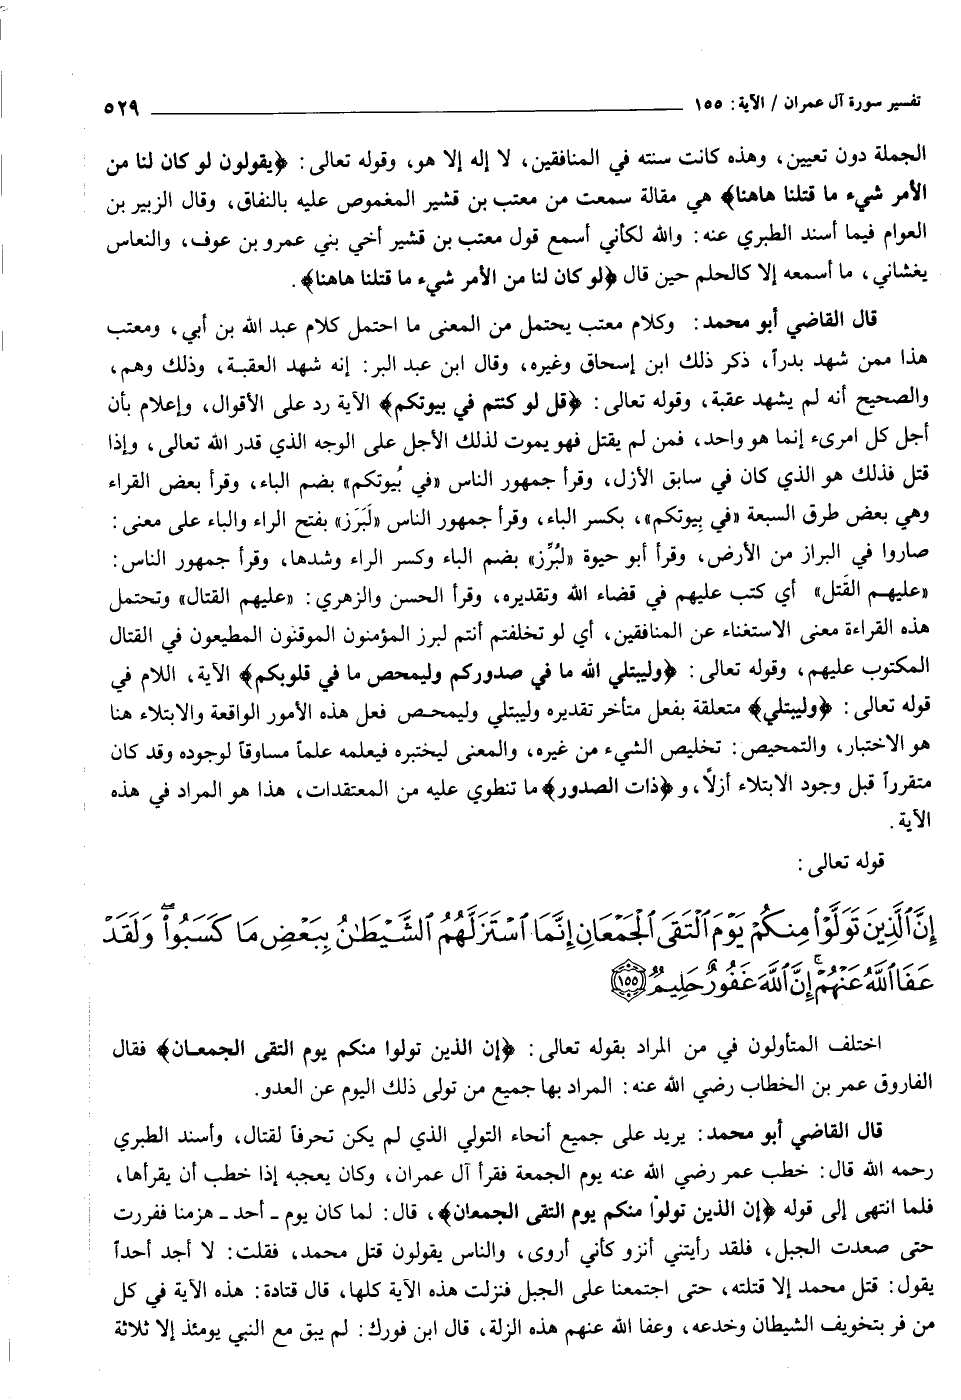 تفسير سورة آل عمران / الآية: ١٥٥ ٥٢٩
الجملة دون تعيين، وهذه كانت سنته في المنافقين، لا إله إلا هو، وقوله تعالى: ﴿يقولون لو كان لنا من
الأمر شيء ما قتلنا هاهنا﴾ هي مقالة سمعت من معتب بن قشير المغموص عليه بالنفاق، وقال الزبير بن
العوام فيما أسند الطبري عنه: والله لكأني أسمع قول معتب بن قشير أخي بني عمرو بن عوف، والنعاس
يغشاني، ما أسمعه إلا كالحلم حين قال ﴿لو كان لنا من الأمر شيء ما قتلنا هاهنا﴾.
قال القاضي أبو محمد: وكلام معتب يحتمل من المعنى ما احتمل كلام عبد الله بن أبي، ومعتب
هذا ممن شهد بدراً، ذكر ذلك ابن إسحاق وغيره، وقال ابن عبد البر: إنه شهد العقبة، وذلك وهم،
والصحيح أنه لم يشهد عقبة، وقوله تعالى: ﴿قل لو كنتم في بيوتكم﴾ الآية رد على الأقوال، وإعلام بأن
أجل كل امرىء إنما هو واحد، فمن لم يقتل فهو يموت لذلك الأجل على الوجه الذي قدر الله تعالى، وإذا
قتل فذلك هو الذي كان في سابق الأزل، وقرأ جمهور الناس «في بُيوتكم» بضم الباء، وقرأ بعض القراء
وهي بعض طرق السبعة «في بِيوتكم»، بكسر الباء، وقرأ جمهور الناس «لَبَرَز» بفتح الراء والباء على معنى:
صاروا في البراز من الأرض، وقرأ أبو حيوة «لبُرِّز» بضم الباء وكسر الراء وشدها، وقرأ جمهور الناس:
«عليهم القَتل» أي كتب عليهم في قضاء الله وتقديره، وقرأ الحسن والزهري: «عليهم القتال» وتحتمل
هذه القراءة معنى الاستغناء عن المنافقين، أي لو تخلفتم أنتم لبرز المؤمنون الموقنون المطيعون في القتال
المكتوب عليهم، وقوله تعالى: ﴿وليبتلي الله ما في صدوركم وليمحص ما في قلوبكم﴾ الآية، اللام في
قوله تعالى: ﴿وليبتلي﴾ متعلقة بفعل متأخر تقديره وليبتلي وليمحص فعل هذه الأمور الواقعة والابتلاء هنا
هو الاختبار، والتمحيص: تخليص الشيء من غيره، والمعنى ليختبره فيعلمه علماً مساوقاً لوجوده وقد كان
متقرراً قبل وجود الابتلاء أزلاً، و﴿ذات الصدور﴾ ما تنطوي عليه من المعتقدات، هذا هو المراد في هذه
الآية.
قوله تعالى:
إِنَّ الَّذِينَ تَوَلَّوْا مِنكُمْ يَوْمَ الْتَقَى الْجَمْعَانِ إِنَّمَا اسْتَزَلَّهُمُ الشَّيْطَٰنُ بِبَعْضِ مَا كَسَبُواْ ۖ وَلَقَدْ
عَفَا اللَّهُ عَنْهُمْ ۚ إِنَّ اللَّهَ غَفُورٌ حَلِيمٌ ١٥٥
اختلف المتأولون في من المراد بقوله تعالى: ﴿إن الذين تولوا منكم يوم التقى الجمعان﴾ فقال
الفاروق عمر بن الخطاب رضي الله عنه: المراد بها جميع من تولى ذلك اليوم عن العدو.
قال القاضي أبو محمد: يريد على جميع أنحاء التولي الذي لم يكن تحرفاً لقتال، وأسند الطبري
رحمه الله قال: خطب عمر رضي الله عنه يوم الجمعة فقرأ آل عمران، وكان يعجبه إذا خطب أن يقرأها،
فلما انتهى إلى قوله ﴿إن الذين تولوْا منكم يوم التقى الجمعان﴾، قال: لما كان يوم ـ أحد ـ هزمنا ففررت
حتى صعدت الجبل، فلقد رأيتني أنزو كأني أروى، والناس يقولون قتل محمد، فقلت: لا أجد أحداً
يقول: قتل محمد إلا قتلته، حتى اجتمعنا على الجبل فنزلت هذه الآية كلها، قال قتادة: هذه الآية في كل
من فر بتخويف الشيطان وخدعه، وعفا الله عنهم هذه الزلة، قال ابن فورك: لم يبق مع النبي يومئذ إلا ثلاثة